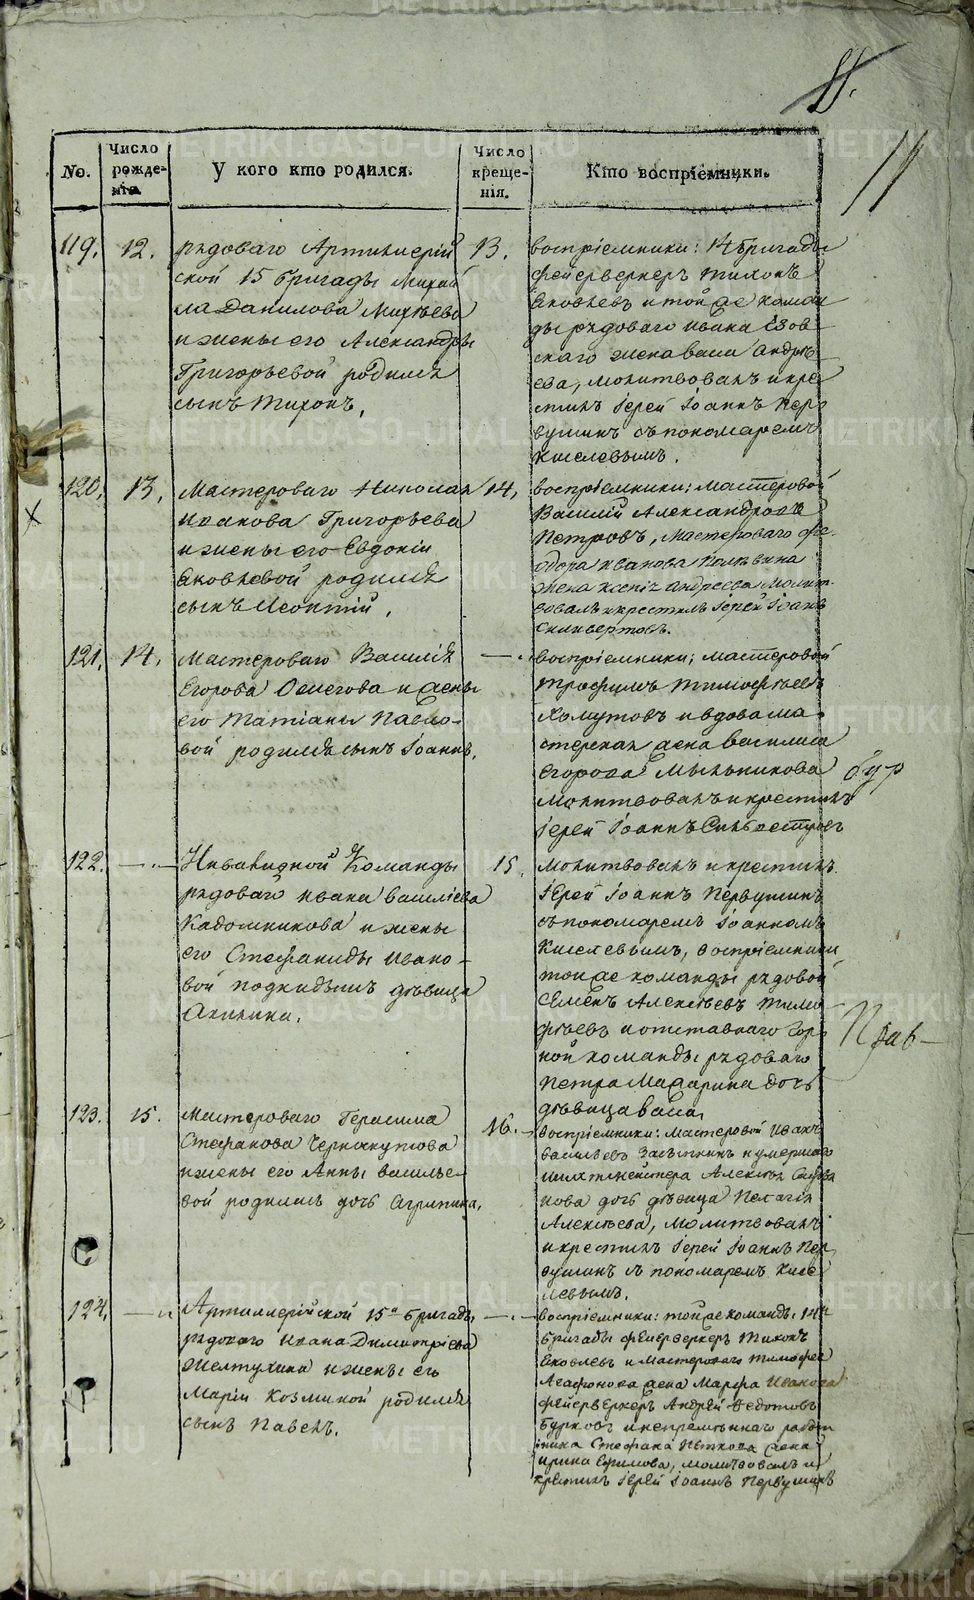 11.
11
No.
Число рожденія.
У кого кто родился.
Число крещенія.
Кто воспріемники.
119.
12.
рядоваго Артиллерій
ской 15 бригады Михаи
ла Данилова Михѣева
и жены его Александры
Григорьевой родился
сынъ Тихонъ.
13.
воспріемники: 14 бригады
фейерверкеръ Тихонъ
Яковлевъ и той же коман
ды рядоваго Ивана
скаго жена Васса Андрѣ
ева, молитвовалъ и кре
стилъ Іерей Іоаннъ Пер
вушинъ съ пономаремъ
Киселевымъ.
120.
13.
Мастероваго Николая
Иванова Григорьева
и жены его Евдокіи
Яковлевой родился
сынъ Леонтій.
14.
воспріемники: мастеровой
Василій Александровъ
Петровъ, мастероваго Фе
дора Иванова
жена Ксенія Андреева молит
вовалъ и крестилъ Іерей Іоаннъ
121.
14.
Мастероваго Василія
Егорова и жены
его Татіаны Павло-
вой родился сынъ Іоаннъ.
—.
воспріемники: мастеровой
Трофимъ Тимофѣевъ
Хомутовъ и вдова ма
стерская жена Василиса
Егорова Мыльникова
молитвовалъ и крестилъ
Іерей Іоаннъ
122.
—
Инвалидной Команды
рядоваго Ивана Васильева
Кадомникова и жены
его Стефаниды Ивано-
вой подкидышъ дѣвица
Акилина.
15.
молитвовалъ и крестилъ
Іерей Іоаннъ Первушинъ
съ пономаремъ Іоанномъ
Киселевымъ, воспріемники
той же команды рядовой
Семенъ Алексѣевъ Тимо
фѣевъ и отставнаго Гор
ной команды рядоваго
Петра Макарина дочь
дѣвица Васса.
123.
15.
Мастероваго Герасима
Стефанова
и жены его Анны Василье-
вой родилась дочь Агрипина.
16.
воспріемники: мастеровой Иванъ
Васильевъ и умершаго
шихтмейстера Алексѣя
нова дочь дѣвица Пелагія
Алексѣева, молитвовалъ
и крестилъ Іерей Іоаннъ Пер
вушинъ съ пономаремъ Кисе
левымъ.
124.
—
Артиллерійской 15й бригады
рядоваго Ивана Димитріева
Желтухина и жены его
Маріи Козминой родился
сынъ Павелъ.
—
воспріемники: той же команды 14й
бригады фейерверкеръ Тихонъ
Яковлевъ и мастероваго Тимофея
Агафонова жена Марфа Иванова
фейерверкеръ Андрей Федотовъ
Бурковъ и непремѣннаго работ
ника Стефана жена
Ирина Ефимова, молитвовалъ и
крестилъ Іерей Іоаннъ Первушинъ
METRIKI.GASO-URAL.RU